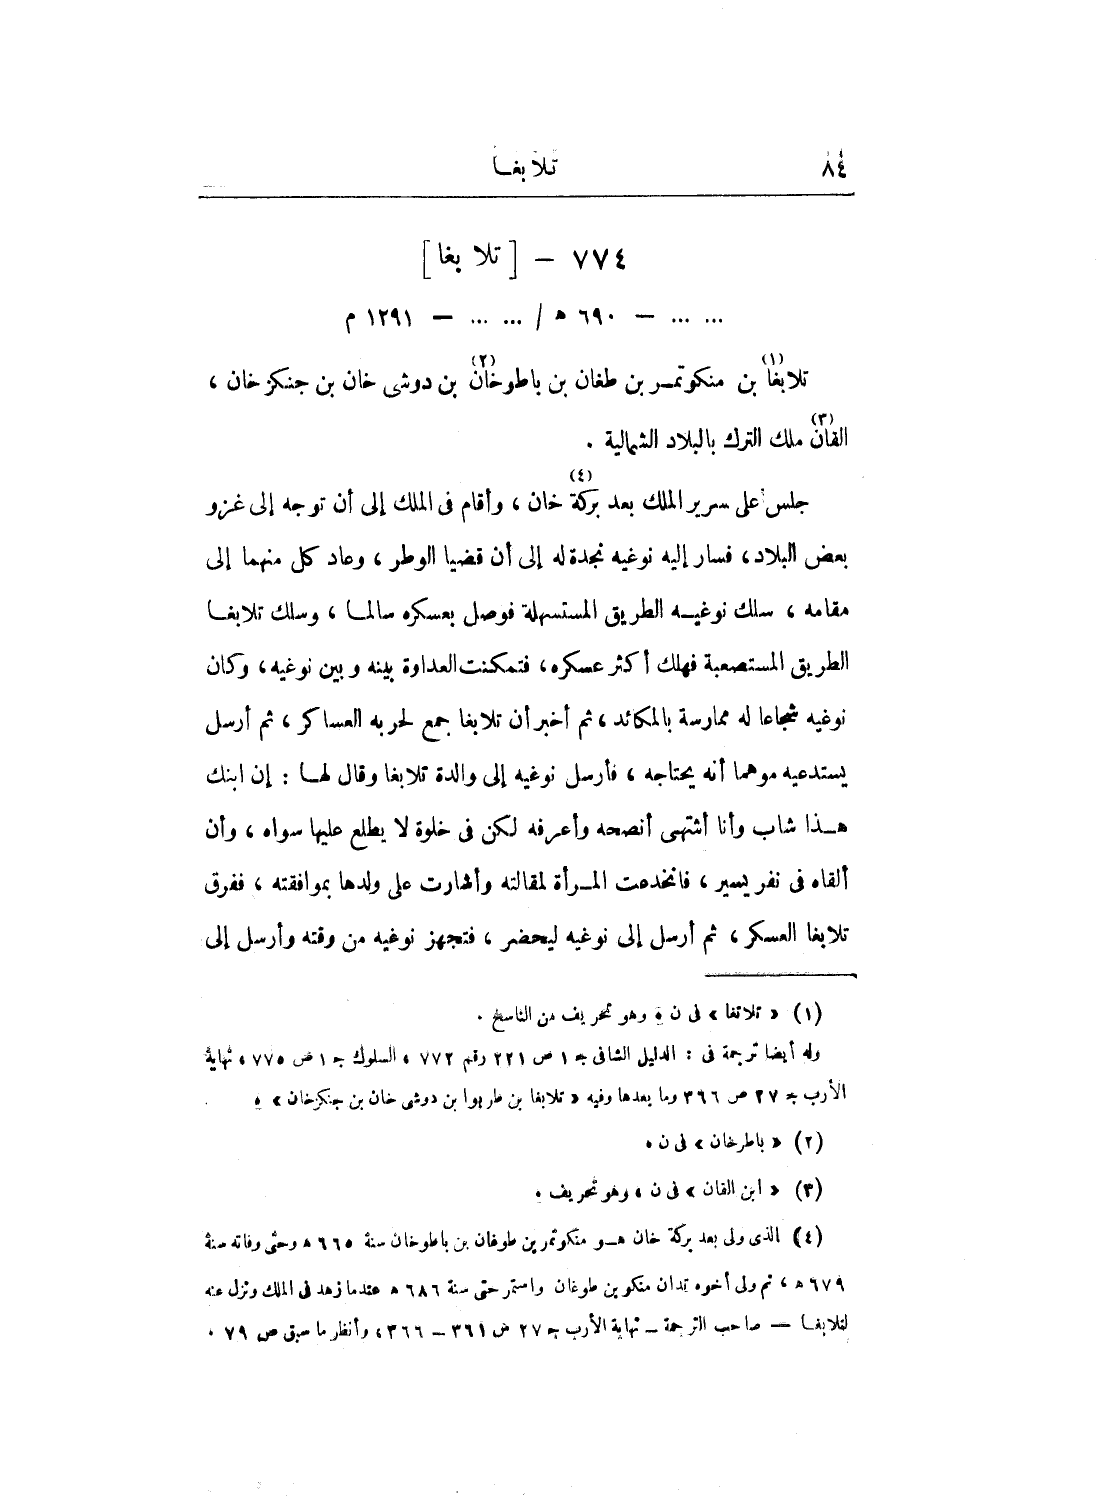 ٨٤ تلابغا
٧٧٤ – [ تلابغا ]
... ... – ٦٩٠ ه / ... ... – ١٢٩١ م
تلابغا(١) بن منكوتمر بن طغان بن باطوخان(٢) بن دوشى خان بن جنكز خان ،
القان(٣) ملك الترك بالبلاد الشمالية .
جلس على سرير الملك بعد بركة(٤) خان ، وأقام فى الملك إلى أن توجه إلى غزو
بعض البلاد ، فسار إليه نوغيه نجدة له إلى أن قضيا الوطر ، وعاد كل منهما إلى
مقامه ، سلك نوغيه الطريق المستسهلة فوصل بعسكره سالما ، وسلك تلابغا
الطريق المستصعبة فهلك أكثر عسكره ، فتمكنت العداوة بينه وبين نوغيه ، وكان
نوغيه شجاعا له ممارسة بالمكائد ، ثم أخبر أن تلابغا جمع لحربه العساكر ، ثم أرسل
يستدعيه موهما أنه يحتاجه ، فأرسل نوغيه إلى والدة تلابغا وقال لها : إن ابنك
هذا شاب وأنا أشتهى أنصحه وأعرفه لكن فى خلوة لا يطلع عليها سواه ، وأن
ألقاه فى نفر يسير ، فانخدعت المرأة لمقالته وأشارت على ولدها بموافقته ، ففرق
تلابغا العسكر ، ثم أرسل إلى نوغيه ليحضر ، فتجهز نوغيه من وقته وأرسل إلى
(١) « تلاتغا » فى ن ، وهو تحريف من الناسخ .
وله أيضا ترجمة فى : الدليل الشافى ج ١ ص ٢٢١ رقم ٧٧٢ ، السلوك ج ١ ص ٧٧٥ ، نهاية
الأرب ج ٢٧ ص ٣٩٦ وما بعدها وفيه « تلابغا بن طربوا بن دوشى خان بن جنكزخان » .
(٢) « باطرخان » فى ن .
(٣) « ابن القان » فى ن ، وهو تحريف .
(٤) الذى ولى بعد بركة خان هو منكوتمر بن طوغان بن باطوخان سنة ٦٦٥ ه وحتى وفاته سنة
٦٧٩ ه ، ثم ولى أخوه تدان منكو بن طوغان واستمر حتى سنة ٦٨٦ ه عندما زهد فى الملك ونزل عنه
لتلابغا – صاحب الترجمة – نهاية الأرب ج ٢٧ ص ٣٦١ – ٣٦٦ ، وأنظر ما سبق ص ٧٩ .